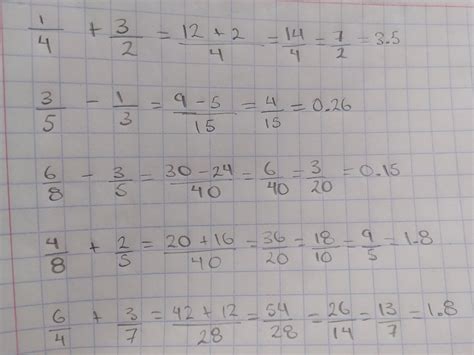 1/4 + 3/2 = 12 + 2/4 = 14/4 = 7/2 = 3.5
3/5 - 1/3 = 9 - 5/15 = 4/15 = 0.26
6/8 - 3/5 = 30 - 24/40 = 6/40 = 3/20 = 0.15
4/8 + 2/5 = 20 + 16/40 = 36/20 = 18/10 = 9/5 = 1.8
6/4 + 3/7 = 42 + 12/28 = 54/28 = 26/14 = 13/7 = 1.8